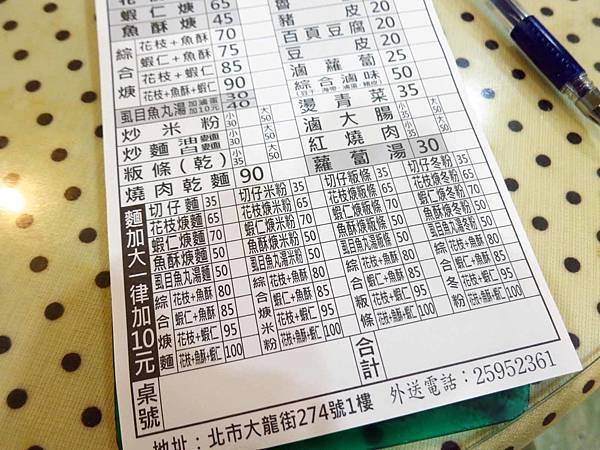 蝦仁焿 65
魚酥焿 45
綜合焿
花枝+魚酥 70
魚酥+蝦仁 75
花枝+蝦仁 85
花枝+魚酥+蝦仁 90
虱目魚丸湯 30
加滷蛋加10元 40
炒米粉 小30 大50
炒麵 油麵 意麵 小30 大50
粄條(乾) 小35 大50
燒肉乾麵 90
豬皮 20
百頁豆腐 20
豆皮 20
滷蘿蔔 25
綜合滷味 50
燙青菜 35
滷大腸 小35 大50
紅燒肉 小50
蘿蔔湯 30
麵加大一律加10元
切仔麵 35
花枝焿麵 65
蝦仁焿麵 70
魚酥焿麵 50
虱目魚丸湯麵 50
綜合焿麵
花枝+魚酥 80
蝦仁+魚酥 85
花枝+蝦仁 95
花枝+魚酥+蝦仁 100
切仔米粉 35
花枝焿米粉 65
蝦仁焿米粉 70
魚酥焿米粉 50
虱目魚丸湯米粉 50
綜合焿米粉
花枝+魚酥 80
蝦仁+魚酥 85
花枝+蝦仁 95
花枝+魚酥+蝦仁 100
切仔粄條 35
花枝焿粄條 65
蝦仁焿粄條 70
魚酥焿粄條 50
虱目魚丸湯粄條 50
綜合粄條
花枝+魚酥 80
蝦仁+魚酥 85
花枝+蝦仁 95
花枝+魚酥+蝦仁 100
切仔冬粉 35
花枝焿冬粉 65
蝦仁焿冬粉 70
魚酥焿冬粉 50
虱目魚丸湯冬粉 50
綜合冬粉
花枝+魚酥 80
蝦仁+魚酥 85
花枝+蝦仁 95
花枝+魚酥+蝦仁 100
桌號
合計
外送電話：25952361
地址：北市大龍街274號1樓